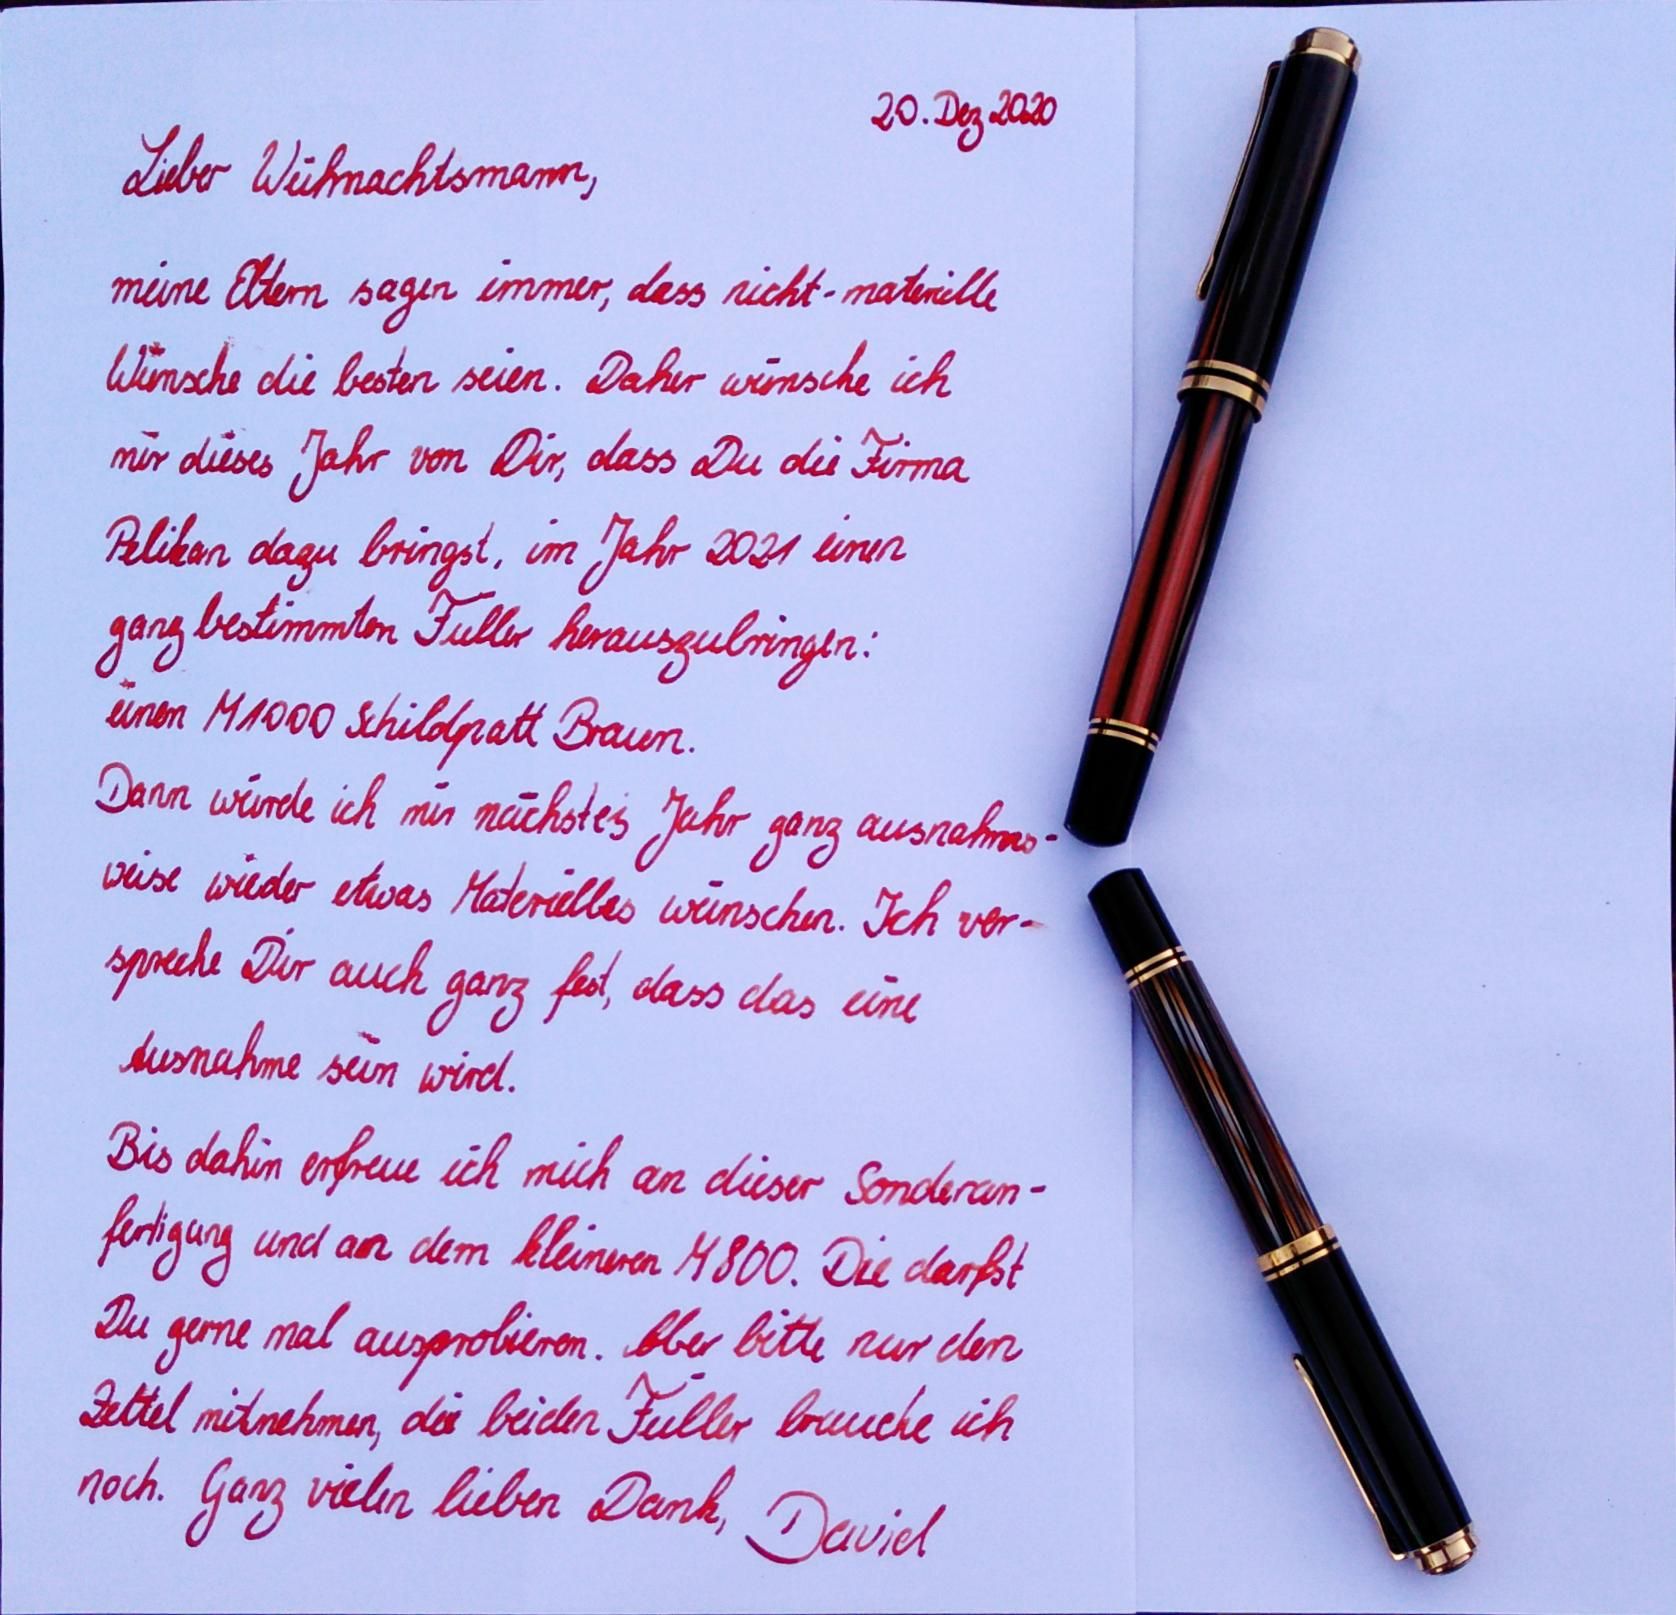 20. Dez 2020
Lieber Weihnachtsmann,
meine Eltern sagen immer, dass nicht-materielle
Wünsche die besten seien. Daher wünsche ich
mir dieses Jahr von Dir, dass Du die Firma
Pelikan dazu bringst, im Jahr 2021 einen
ganz bestimmten Füller herauszubringen:
einen M1000 Schildpatt Braun.
Dann würde ich mir nächstes Jahr ganz ausnahms-
weise wieder etwas Materielles wünschen. Ich ver-
spreche Dir auch ganz fest, dass das eine
Ausnahme sein wird.
Bis dahin erfreue ich mich an dieser Sonderan-
fertigung und an dem kleineren M800. Die darfst
Du gerne mal ausprobieren. Aber bitte nur den
Zettel mitnehmen, die beiden Füller brauche ich
noch. Ganz vielen lieben Dank, David